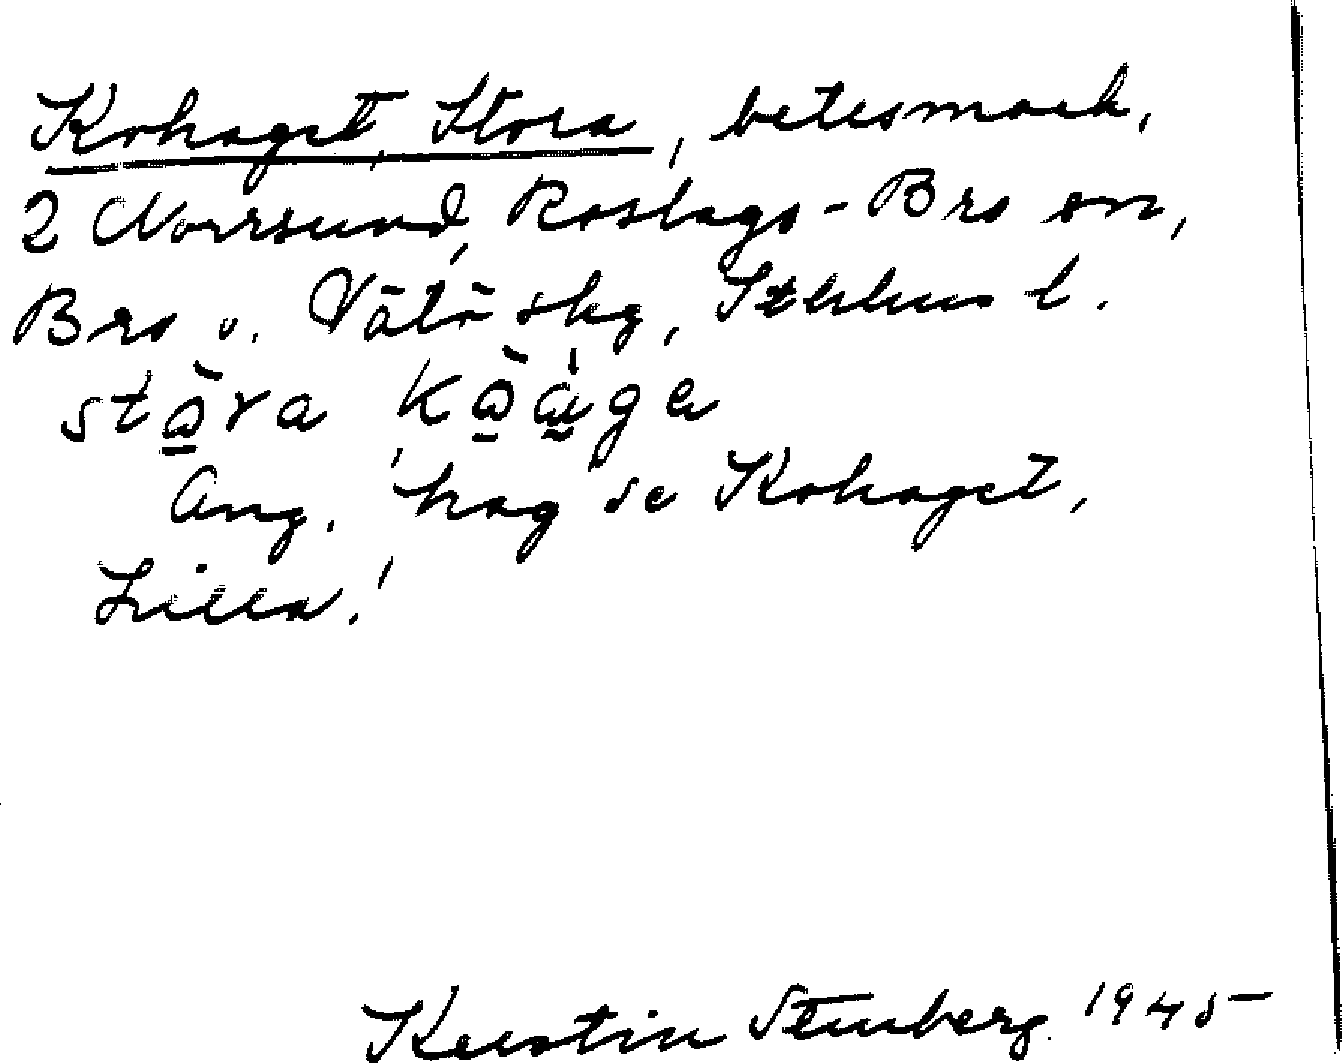 Kohaget, Stora, betesmark,
2 Norrsund, Roslags-Bro sn,
Bro o. Vätö skg, Sthlms l.
stɷ̀ra kɷ̀àge
Ang. hag se Kohaget,
Lilla!
Kerstin Stenberg 1945